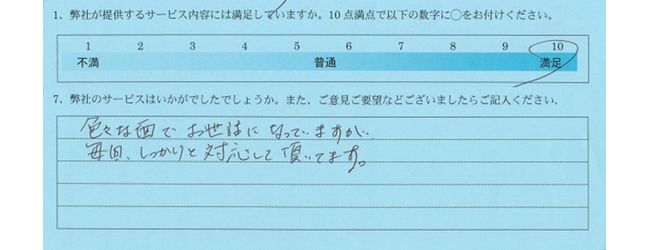 1、弊社が提供するサービス内容には満足していますか。10点満点で以下の数字に○をお付けください。
1 2 3 4 5 6 7 8 9 10
不満 普通 満足
7、弊社のサービスはいかがでしたでしょうか。また、ご意見ご要望などございましたらご記入ください。
色々な面でお世話になっていますが、
毎回、しっかりと対応して頂いてます。